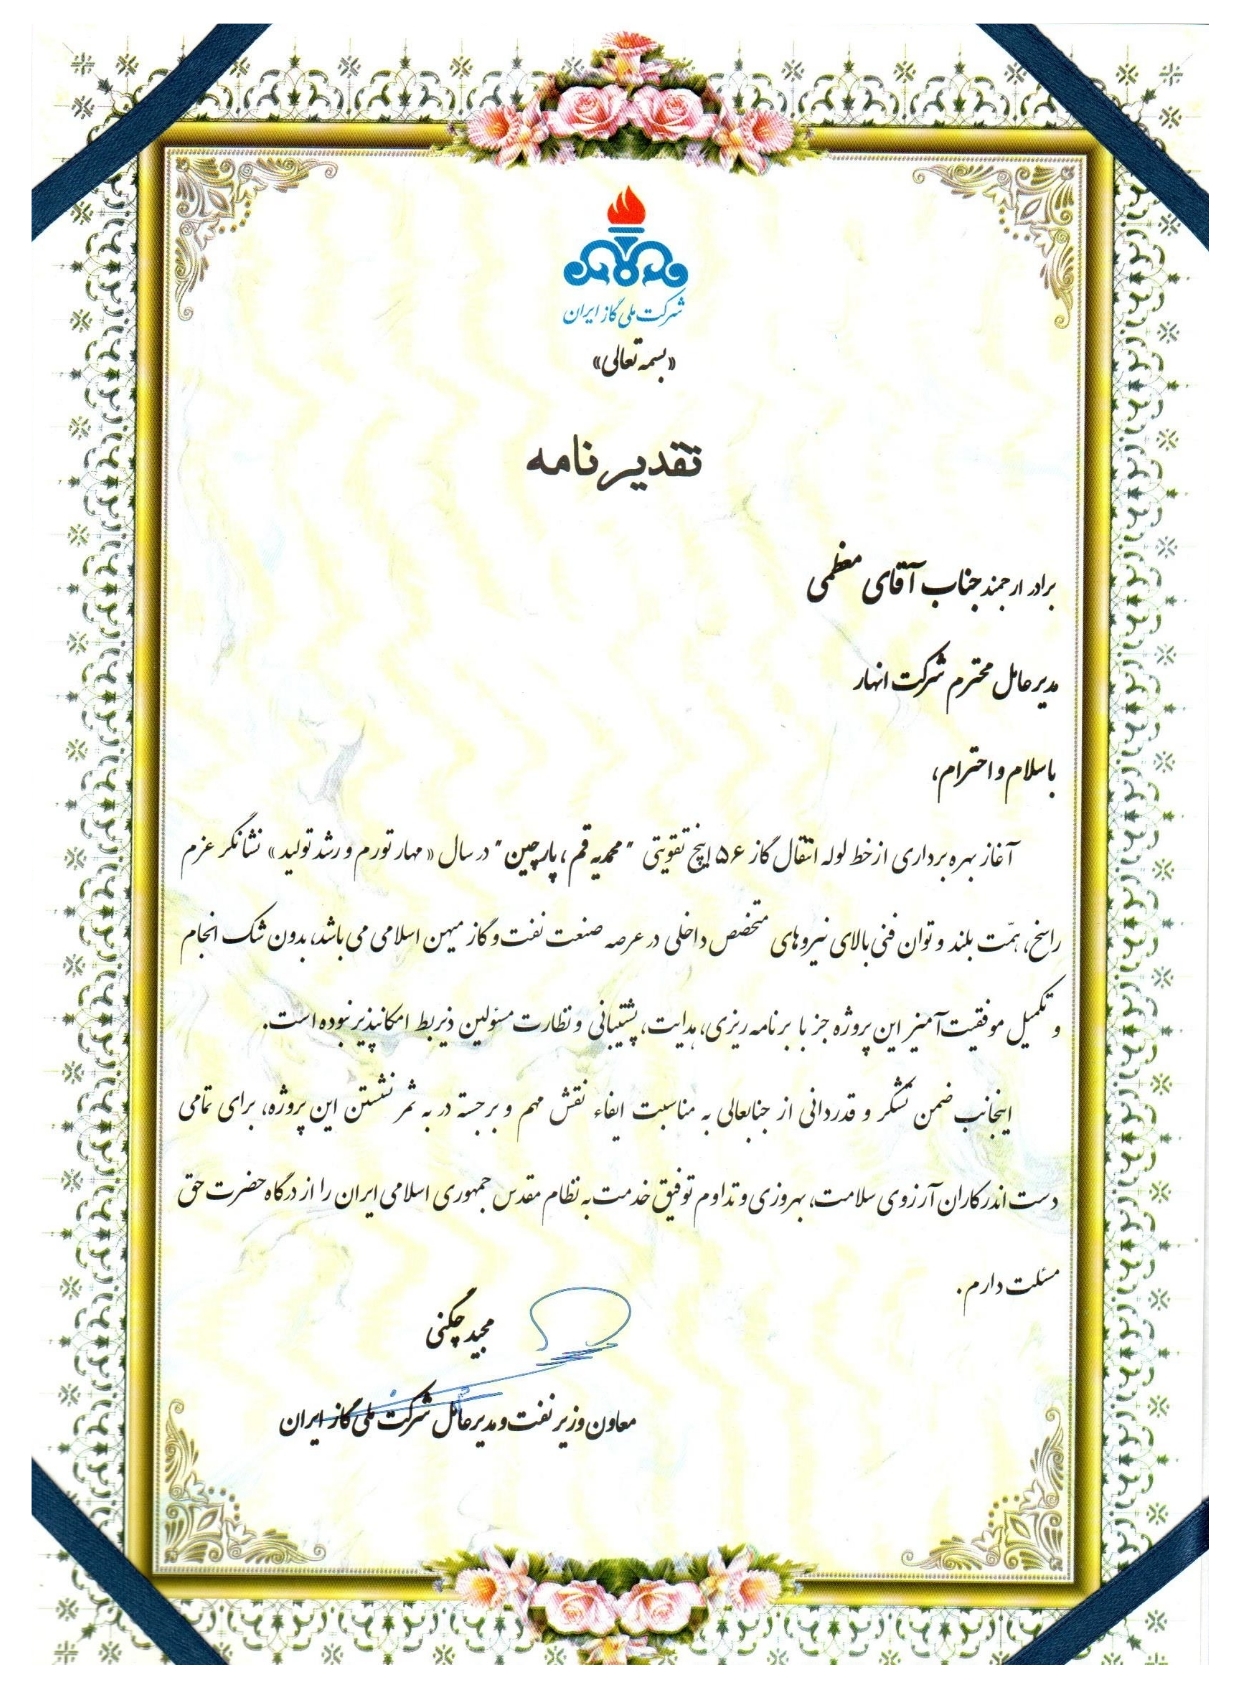 شرکت ملی گاز ایران
«بسمه تعالی»
تقدیرنامه
برادر ارجمند جناب آقای معظمی
مدیرعامل محترم شرکت انهار
باسلام و احترام،
آغاز بهره برداری از خط لوله انتقال گاز ۵۶ اینچ تقویتی "محمدیه قم، پارچین" در سال «مهار تورم و رشد تولید» نشانگر عزم
راسخ، همّت بلند و توان فنی بالای نیروهای متخصص داخلی در عرصه صنعت نفت و گاز میهن اسلامی می باشد، بدون شک انجام
و تکمیل موفقیت آمیز این پروژه جز با برنامه ریزی، هدایت، پشتیبانی و نظارت مسئولین ذیربط امکانپذیر نبوده است.
اینجانب ضمن تشکر و قدردانی از جنابعالی به مناسبت ایفاء نقش مهم و برجسته در به ثمر نشستن این پروژه، برای تمامی
دست اندرکاران آرزوی سلامت، بهروزی و تداوم توفیق خدمت به نظام مقدس جمهوری اسلامی ایران را از درگاه حضرت حق
مسئلت دارم.
مجید چگنی
معاون وزیر نفت و مدیرعامل شرکت ملی گاز ایران